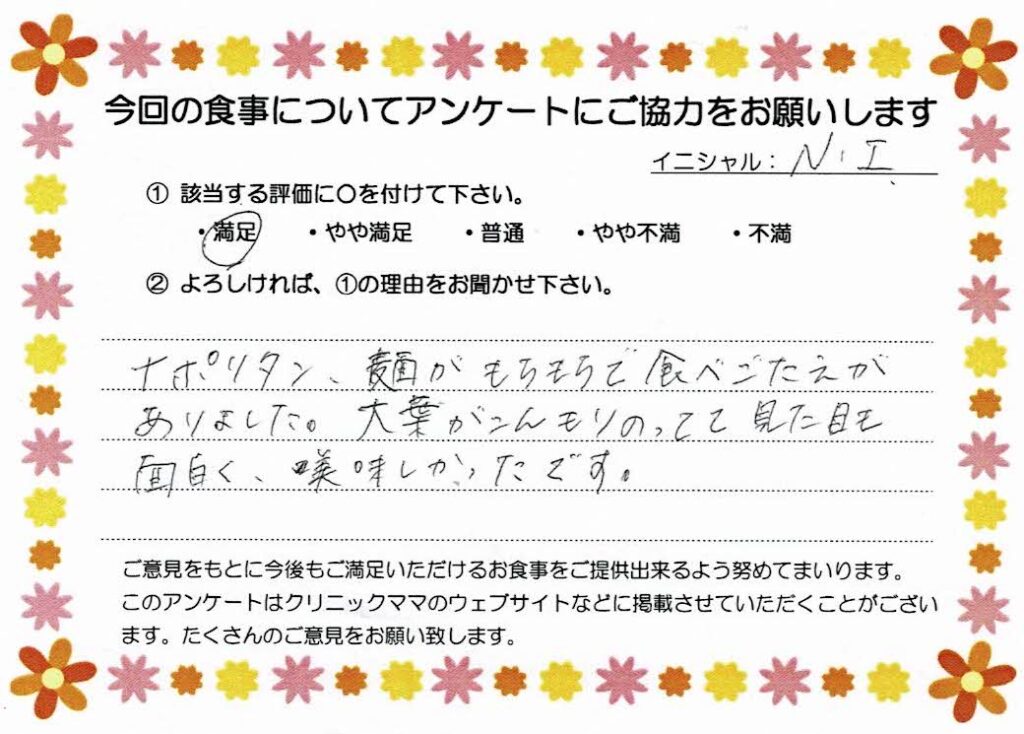 今回の食事についてアンケートにご協力をお願いします
イニシャル：N.I
① 該当する評価に〇を付けて下さい。
・満足 ・やや満足 ・普通 ・やや不満 ・不満
② よろしければ、①の理由をお聞かせ下さい。
ナポリタン、麺がもちもちで食べごたえが
ありました。大葉がこんもりのってて見た目も
面白く、美味しかったです。
ご意見をもとに今後もご満足いただけるお食事をご提供出来るよう努めてまいります。
このアンケートはクリニックママのウェブサイトなどに掲載させていただくことがござい
ます。たくさんのご意見をお願い致します。